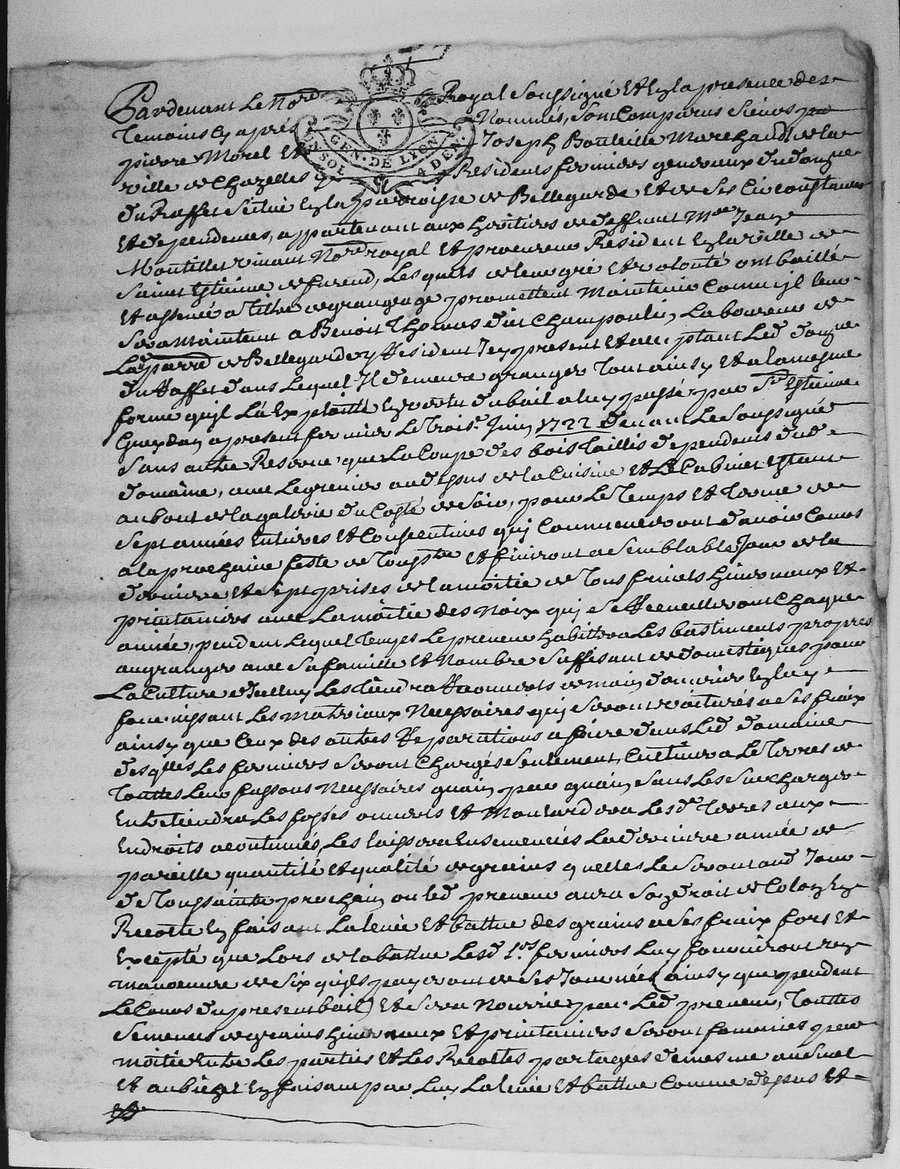 Pardevant Le No.re Royal Soussigné Et En la presence des
Temoins Cy aprés Nommés, Sont Comparus Sieurs
pierre Morel Et Joseph Bouteille Marchand de la
ville de Chazelles y Residents fermiers generaux du domaine
du Raffet Scitué En la parroisse de Bellegarde Et de Ses Circonstances
Et dependences, appartenant aux heritiers de deffunt M.re Jean
Montillet vivant No.re royal Et procureur Resident En la ville de
Saint Etienne de furend, Les quels de leur gré Et volonté ont baillé
Et assencé a Titre de grangeage promettent Maintenir Comm' jl leur
Sera maintenu a Benoit Thomas dit Champoulin, Laboureur de
Lad. parr. de Bellegarde y Resident Jcy present Et acceptant Led. domaine
du Raffet dans Lequel Jl demeure granger Tout ainsy Et a la mesme
forme qu'jl La Exploitté En vertu du bail a luy passé par S.r Estienne
a present fermier Le trois.e Juin 1722 devant Le Soussigné
Sans autre Reserve que La Coupe des bois Taillis dependents dud.
domaine, avec Le grenier au dessus de la Cuisine Et Le Cabinet Estant
au bout de la galerie du Costé de Soir, pour Le Temps Et Terme de
Sept années Entieres Et Consecutives qui Commenceront d'avoir Cours
a la prochaine feste de Touss.ts Et finiront a Semblable Jour de la
derniere Et Sept prises de la moitié de Tous fruits hivernaux Et
printaniers avec La moitié des Noix qui se Recueilleront Chaque
année, pendent Lequel Temps Le preneur habitera Les bastiments propres
au granger avec Sa famille Et Nombre Suffisant de domestiques pour
La Culture d'Jcelluy Les Tiendra Recouverts de main d'ouvrier En luy
fournissant Les matereaux Necessaires qui Seront voiturés a Ses fraix
ainsy que Ceux des autres Reparations a faire dans Led. domaine
desq.lles Les fermiers Seront Chargés Seulement, Cultivera Le Terres de
Touttes Leur fassons Necessaires quain par quain Sans Les Surcharger
Entretiendra Les fossés ouverts Et Les d. Terres aux
Endroits accoutumés, Les laissera Ensemencées La derniere année de
pareille quantité Et qualité de grains qu'elles Le Seront aud. Jour
de Toussaints prochain ou led. preneur aura Son droit de Colon En
Recolte En faisant La levée Et battue des grains a Ses fraix fors Et
Excepté que Lors de la battue Lesd. S.rs fermiers Luy fourniront un
manoeuvre de Six qu'jls payeront de Ses Journées (ainsy que pendent
Le Cours du present bail) Et Sera Nourrie par Led. preneur, Touttes
Semences de grains hivernaux Et printaniers Seront fournies par
moitié Entre Les parties Et Les Recoltes partagés de mesme au Sual
Et au bichet En faisant par Luy La levée Et battue Comme dessus Et
GEN. DE LYON